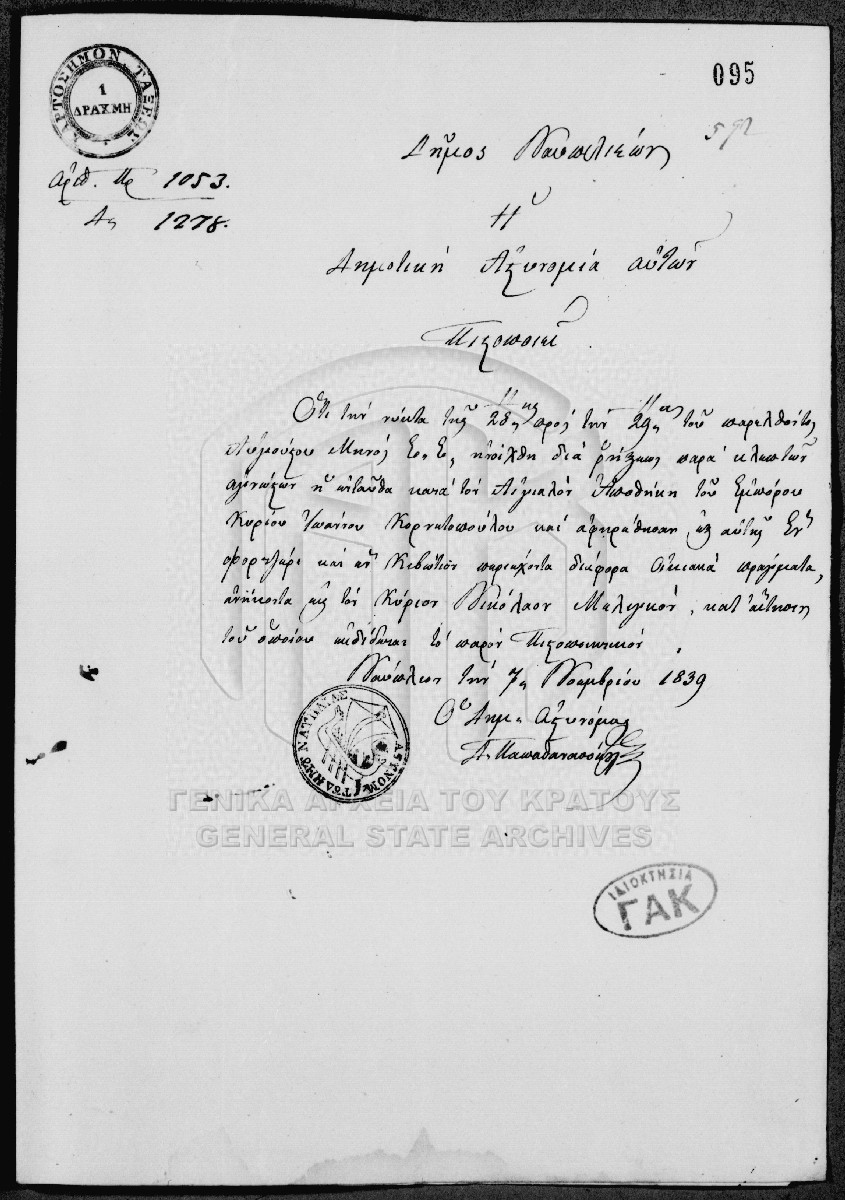 ΧΑΡΤΟΣΗΜΟΝ ΤΑΞΕΩΣ
1
ΔΡΑΧΜΗ
095
592
Δῆμος Ναυπλιέων
ἀριθ. Πρ 1053.
Δς 1278.
Ἡ
Δημοτική Ἀστυνομία αὐτοῦ
Πιστοποιεῖ
Ὅτι τήν νύκτα τῆς 28ης πρός τήν 29ην τοῦ παρελθόντος
Αὐγούστου Μηνός ἔ. ἔ. ἠνοίχθη διά ῥήξεως παρά κλεπτῶν
ἀγνώστων ἡ ἐνταῦθα κατά τόν Αἰγιαλόν Ἀποθήκη τοῦ Ἐμπόρου
Κυρίου Ἰωάννου Κορνητοπούλου καί ἀφηρέθησαν ἐξ αὐτῆς Ἕν
φορτζέρι καί ἕν Κιβώτιον περιέχοντα διάφορα Οἰκιακά πράγματα,
ἀνήκοντα εἰς τόν Κύριον Νικόλαον, κατ' αἴτησιν
τοῦ ὁποίου ἐκδίδεται τό παρόν Πιστοποιητικόν.
Ναύπλιον τήν 7 Νοεμβρίου 1839
Ὁ Δημ. Ἀστυνόμος
Παπαθανασόπουλος
ΓΕΝΙΚΑ ΑΡΧΕΙΑ ΤΟΥ ΚΡΑΤΟΥΣ
GENERAL STATE ARCHIVES
ΙΔΙΟΚΤΗΣΙΑ
ΓΑΚ